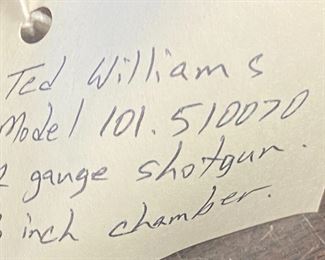 Ted Williams
Model 101.510070
2 gauge shotgun.
inch chamber.